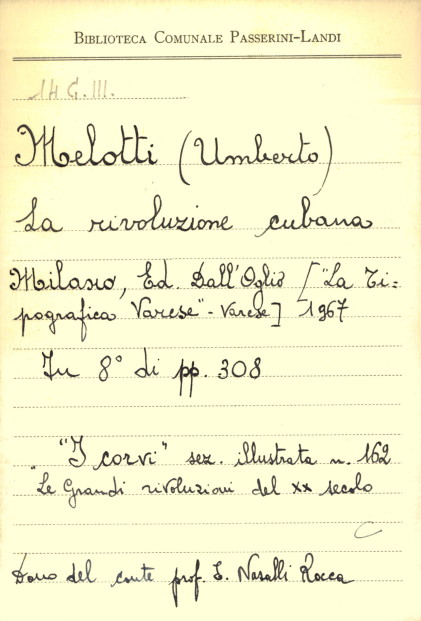 BIBLIOTECA COMUNALE PASSERINI-LANDI
14 G. III.
Melotti (Umberto)
La rivoluzione cubana
Milano, Ed. Dall'Oglio ["La Ti=
pografica Varese" - Varese] 1967
In 8° di pp. 308
"I corvi" sez. illustrata n. 162
"Le Grandi rivoluzioni del XX secolo
Dono del conte prof. E. Nasalli Rocca